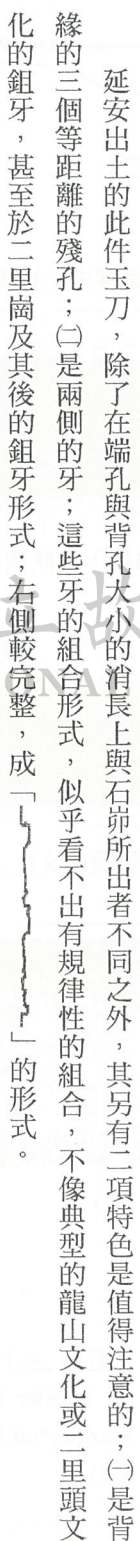 延安出土的此件玉刀，除了在端孔與背孔大小的消長上與石峁所出者不同之外，其另有二項特色是值得注意的；㈠是背
緣的三個等距離的殘孔；㈡是兩側的牙；這些牙的組合形式，似乎看不出有規律性的組合，不像典型的龍山文化或二里頭文
化的鉏牙，甚至於二里崗及其後的鉏牙形式；右側較完整，成「」的形式。